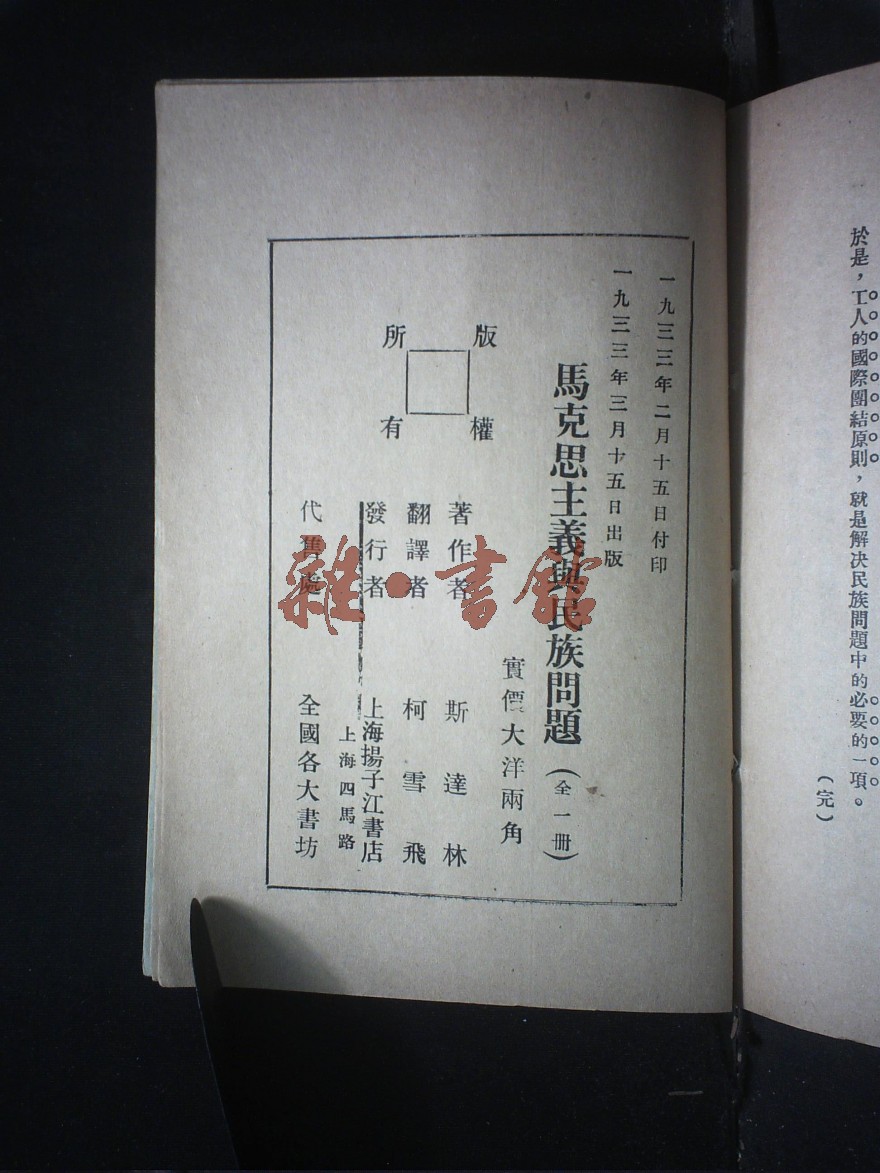 於是，工人的國際團結原則，就是解決民族問題中的必要的一項。
（完）
一九三三年二月十五日付印
一九三三年三月十五日出版
馬克思主義與民族問題（全一冊）
實價大洋兩角
版權所有
著作者 斯達林
翻譯者 柯雪飛
發行者 上海揚子江書店
上海四馬路
代售處 全國各大書坊
雜·書館